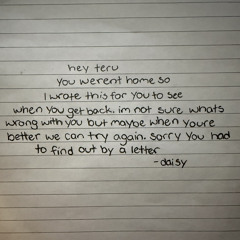 hey teru
you werent home so
I wrote this for you to see
when you get back. im not sure whats
wrong with you but maybe when youre
better we can try again. sorry you had
to find out by a letter
-daisy